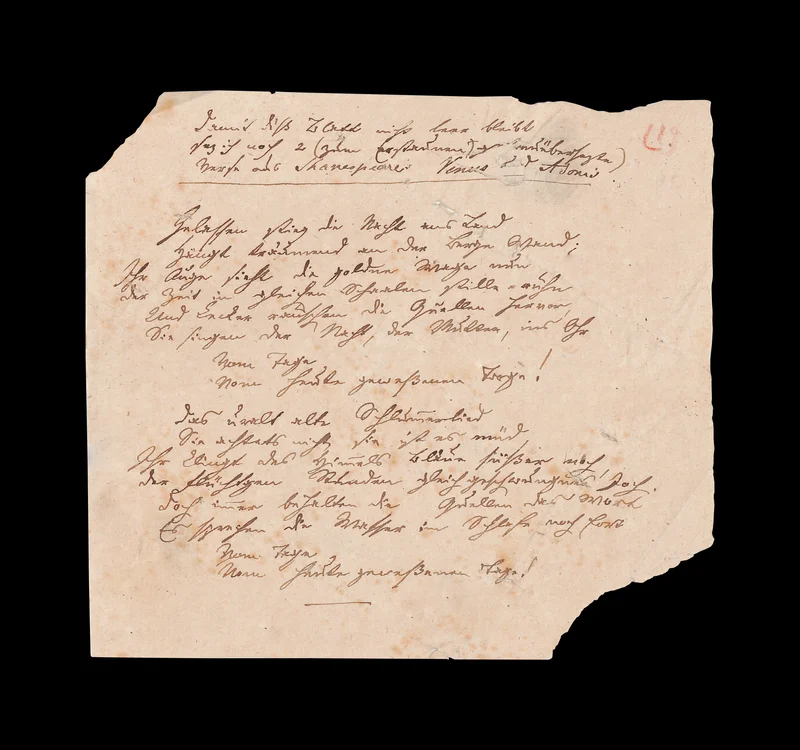 Damit diß Blatt nicht leer bleibt
sez ich noch 2 (zum Erstaunen übersezte)
Verse aus Shakespeares Venus und Adonis.
Gelassen stieg die Nacht ans Land
Hängt träumend an der Berge Wand;
Ihr Auge sieht die goldne Wage nun
der Zeit in gleichen Schaalen stille ruhn
Und kecker rauschen die Quellen hervor,
Sie singen der Nacht, der Mutter, ins Ohr
Vom Tage
Vom heute geweßenen Tage!
Das uralt alte Schlum̅erlied
Sie achtets nicht, sie ist es müd,
Ihr klingt des Him̅els Bläue süßer noch,
der flüchtgen Stunden gleichgeschwungnes Joch.
Doch im̅er behalten die Quellen das Wort
Es sprechen die Wasser im Schlafe noch fort
Vom Tage
Vom heute geweßenen Tage!